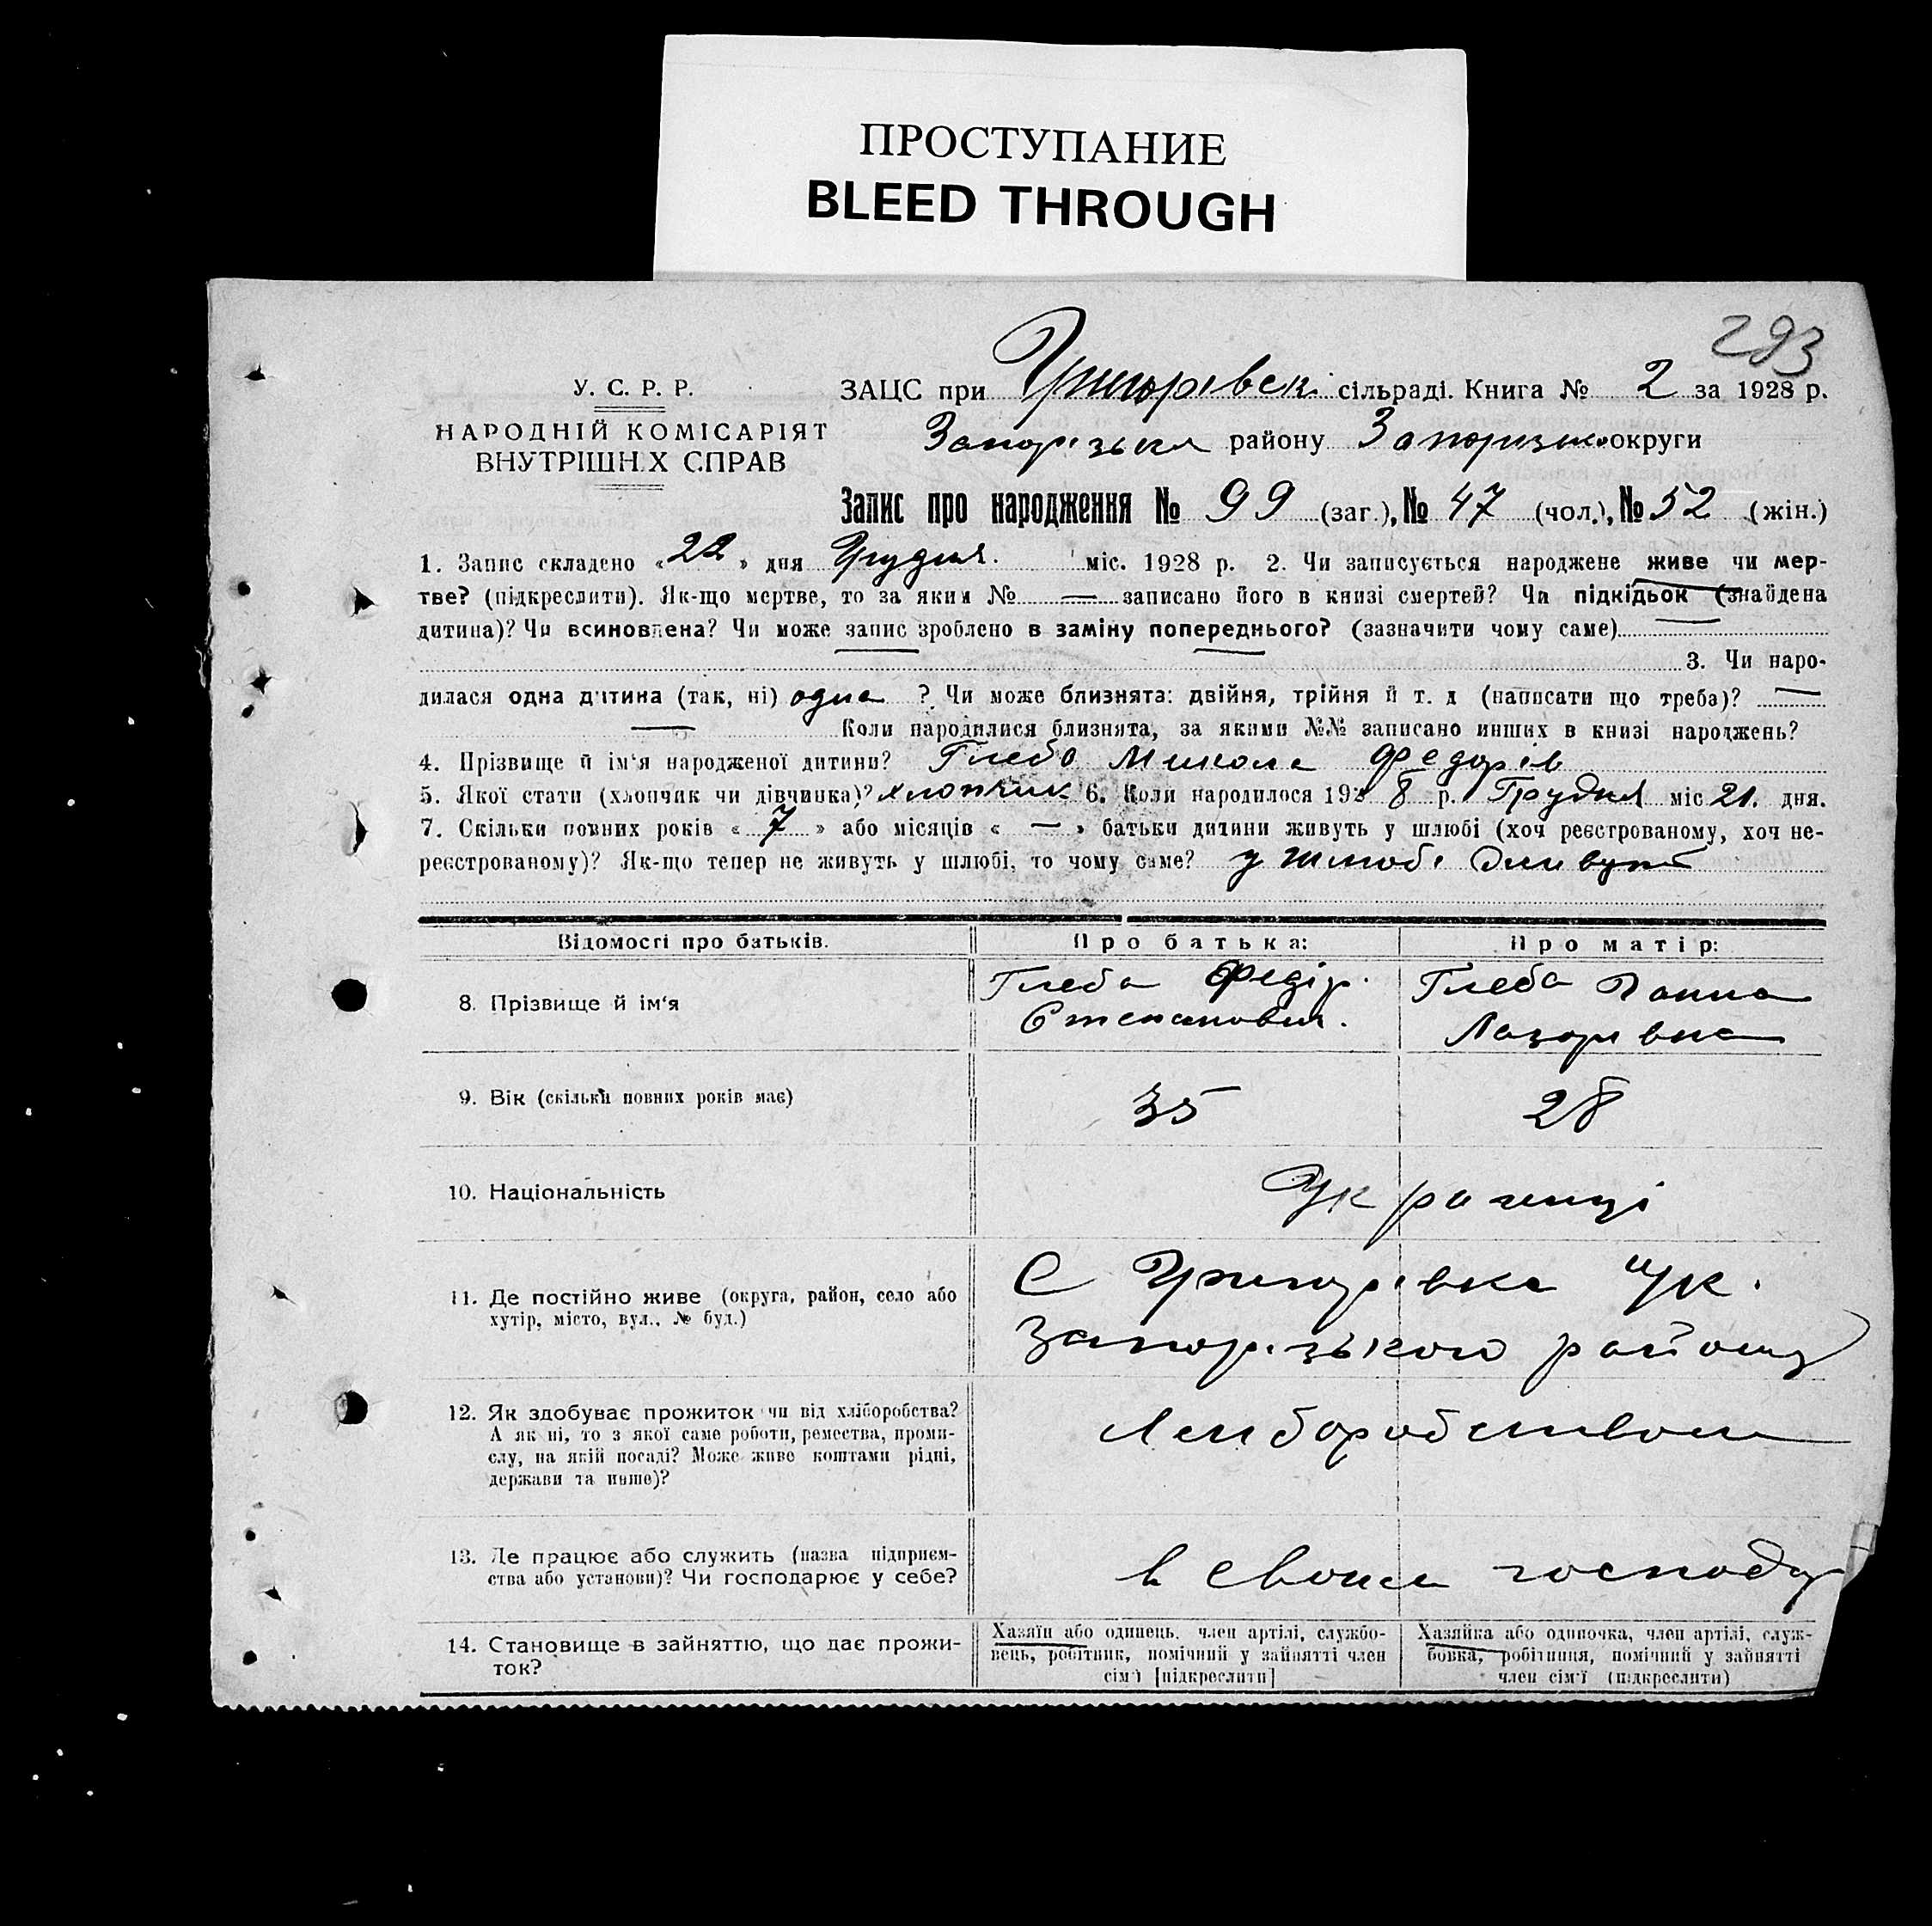 ПРОСТУПАНИЕ
BLEED THROUGH
293
У. С. Р. Р.
НАРОДНІЙ КОМІСАРІЯТ
ВНУТРІШНІХ СПРАВ
ЗАЦС при Григорівскі сільраді. Книга № 2 за 1928 р.
району округи
Запис про народження № 99 (заг.), № 47 (чол.), № 52 (жін.)
1. Запис складено « 22 » дня Грудня. міс. 1928 р. 2. Чи записується народжене живе чи мер-
тве? (підкреслити). Як-що мертве, то за яким № — записано його в книзі смертей? Чи підкідьок (знайдена
дитина)? Чи всиновлена? Чи може запис зроблено в заміну попереднього? (зазначити чому саме) —
3. Чи наро-
дилася одна дитина (так, ні) одна ? Чи може близнята: двійня, трійня й т. д (написати що треба)? —
— Коли народилися близнята, за якими №№ записано инших в книзі народжень?
4. Прізвище й ім'я народженої дитини? Глеба Микола Федорів
5. Якої стати (хлопчик чи дівчинка)? хлопчик 6. Коли народилося 1928 р. Грудня міс 21. дня.
7. Скільки повних років « 7 » або місяців « — » батьки дитини живуть у шлюбі (хоч реєстрованому, хоч не-
реєстрованому)? Як-що тепер не живуть у шлюбі, то чому саме? у шлюбі живуть
Відомості про батьків.
Про батька:
Про матір:
8. Прізвище й ім'я
Глеба Федір.
Степанович.
Глеба Ганна
Лазорівна
9. Вік (скільки повних років має)
35
28
10. Національність
Українці
11. Де постійно живе (округа, район, село або
хутір, місто, вул., № буд.)
С Григорівка Ук.
Запорізького району
12. Як здобуває прожиток чи від хліборобства?
А як ні, то з якої саме роботи, ремества, проми-
слу, на якій посаді? Може живе коштами рідні,
держави та инше)?
13. Де працює або служить (назва підприєм-
ства або установи)? Чи господарює у себе?
в своїм господар
14. Становище в зайняттю, що дає прожи-
ток?
Хазяїн або одинець, член артілі, службо-
вець, робітник, помічний у зайнятті член
сім'ї [підкреслити]
Хазяйка або одиночка, член артілі, служ-
бовка, робітниця, помічний у зайнятті
член сім'ї (підкреслити)